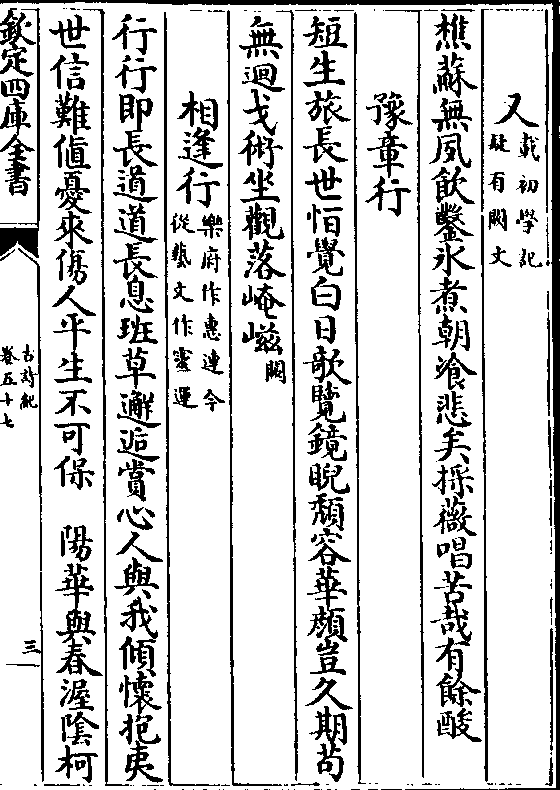 又載初學記
疑有闕文
樵蘇無夙飲鑿氷煮朝飡悲矣採薇唱苦哉有餘酸
豫章行
短生旅長世恒覺白日欹覽鏡睨頹容華顔豈久期苟
無迴戈術坐觀落崦嵫闕
相逢行樂府作惠連今
從藝文作靈運
行行即長道道長息班草邂逅賞心人與我傾懷抱夷
世信難值憂來傷人平生不可保 陽華與春渥陰柯
欽定四庫全書
古詩紀
卷五十七
三